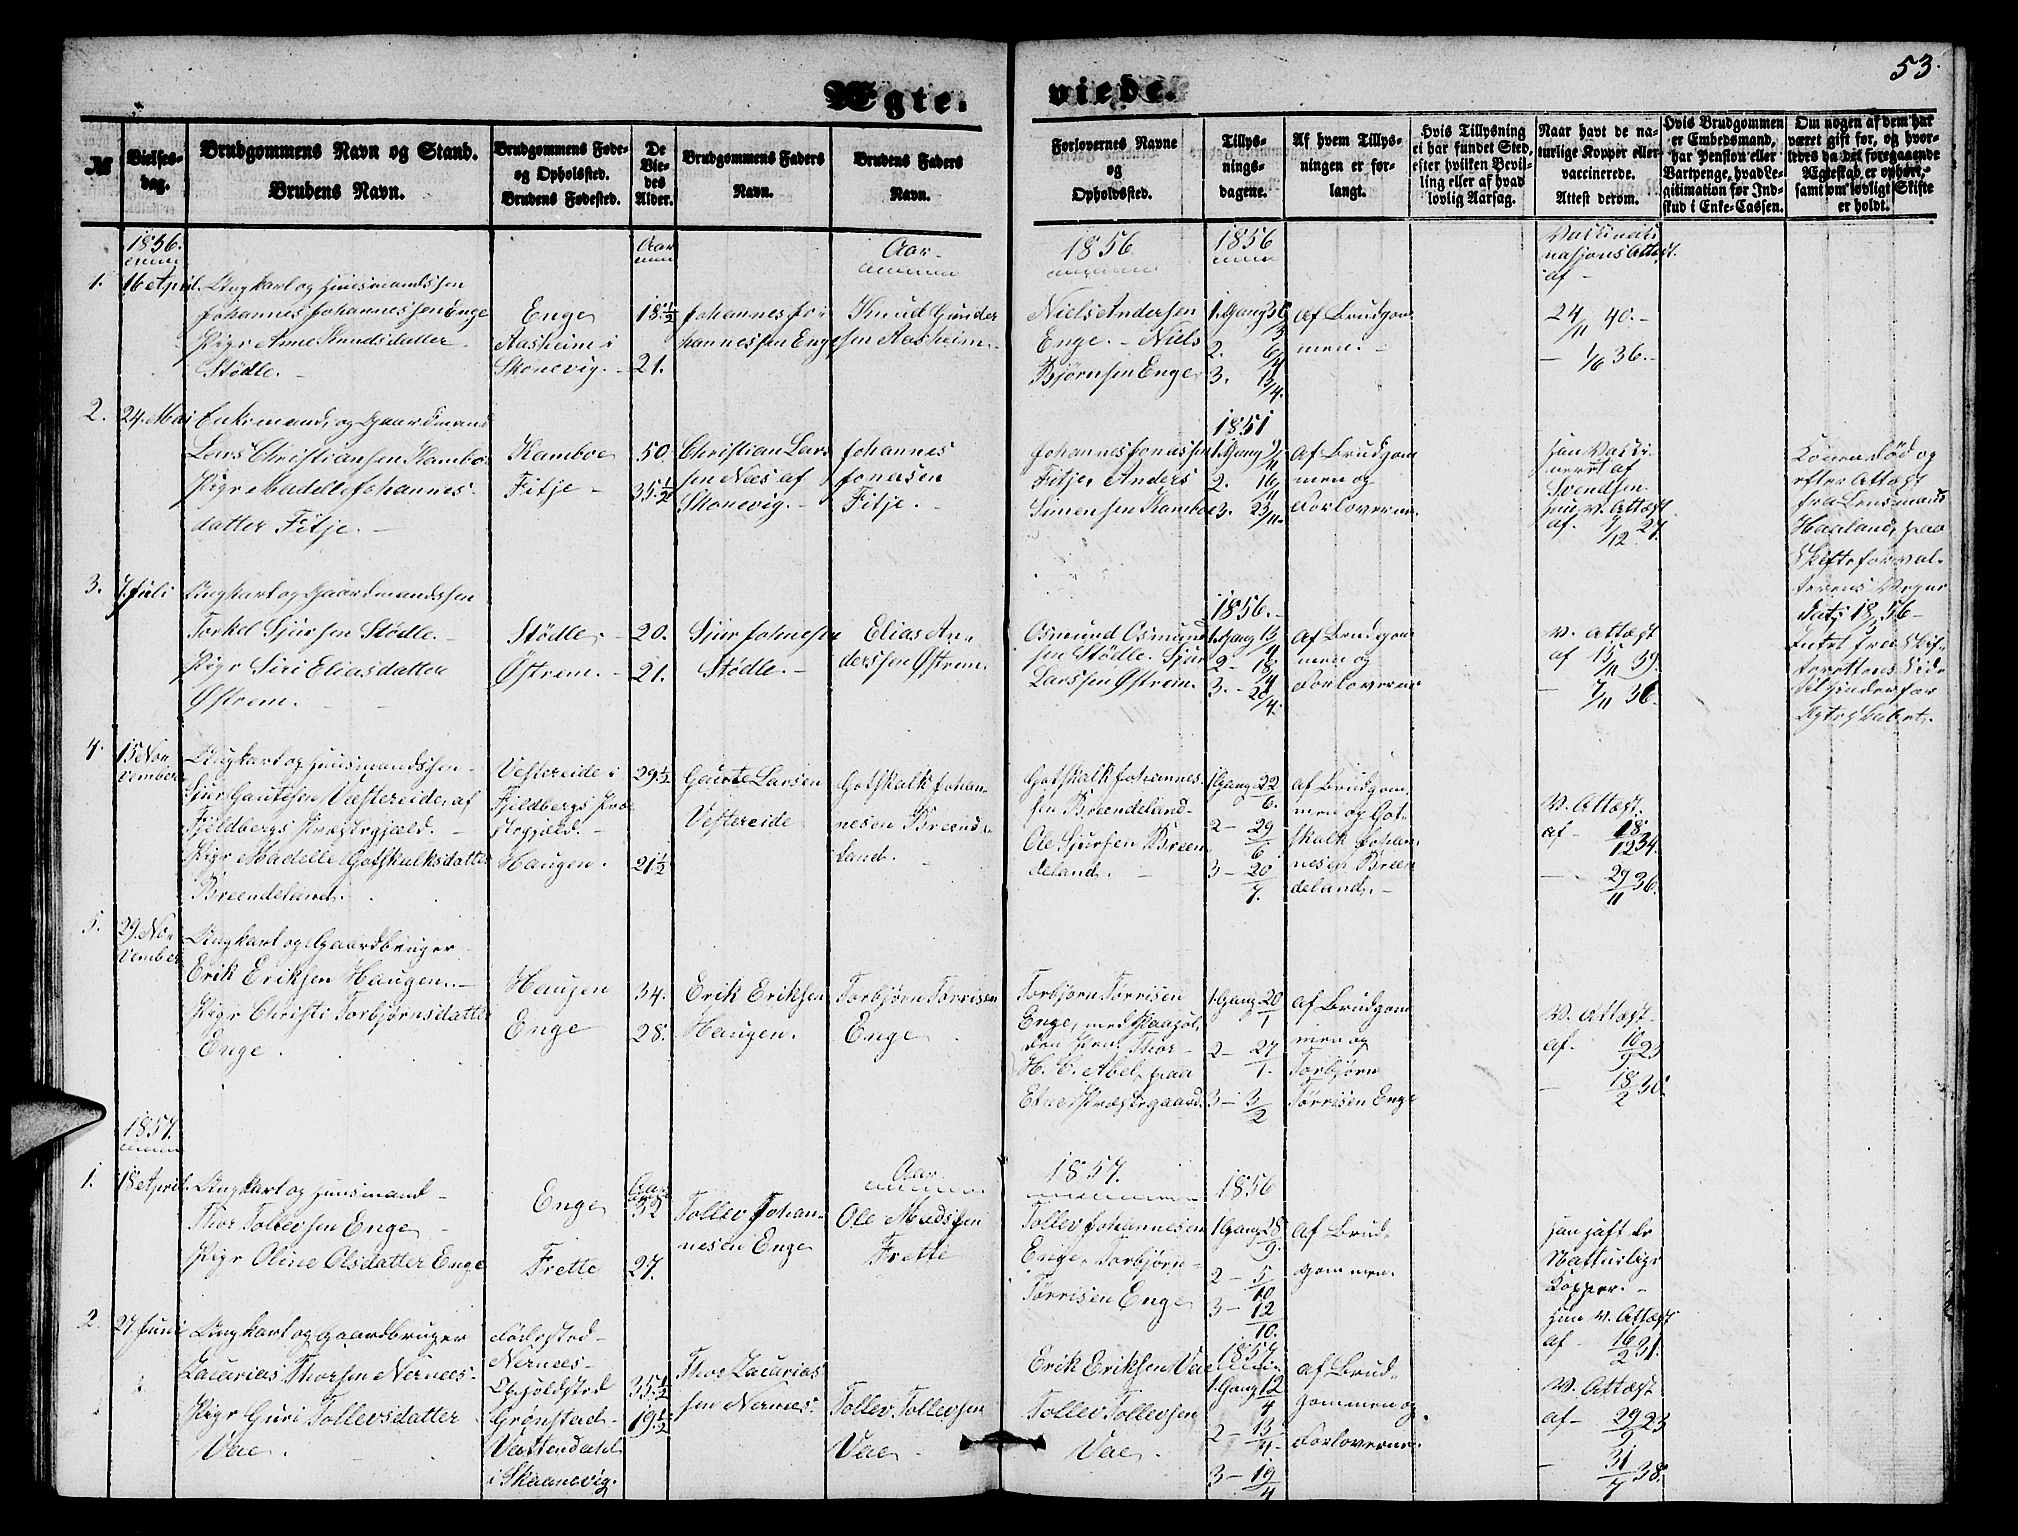 53.
Ægte-
viede.
№
Vielses-
dag.
Brudgommens Navn og Stand.
Brudens Navn.
Brudgommens Føde-
og Opholdssted.
Brudens Fødested.
De
Vie-
des
Alder.
Brudgommens Faders
Navn.
Brudens Faders
Navn.
Forlovernes Navne
og
Opholdssted.
Tillys-
nings-
dagene.
Af hvem Tillys-
ningen er for-
langt.
Hvis Tillysning
ei har fundet Sted,
efter hvilken Bevil-
ling eller af hvad
lovlig Aarsag.
Naar havt de na-
turlige Kopper eller
vaccinerede.
Attest derom.
Hvis Brudgommen
er Embedsmand,
har Pension eller
Vartpenge, hvad Le-
gitimation for Ind-
skud i Enke-Cassen.
Om nogen af dem har
været gift før, og hvor-
ledes da det foregaaende
Ægteskab er ophørt,
samt om lovligt Skifte
er holdt.
1856.
Aar
Aar
1856
1856
1. 16 April
Ungkarl og Huusmandssøn
Johannes Johannessen Enge
Pige Anne Knudsdatter
Stødle.
Enge
Aasheim i
Skonevig.
18½
21.
Johannes Jo-
hannessen Enge
Knud Gunder
sen Aasheim.
Niels Andersen
Enge. - Niels
Bjørnsen Enge
1. Gang 30/3
2. 6/4
3. 13/4.
af Brudgom
men.
af
24/11 40.
1/6 36.
2. 24. Mai
Enkemand og Gaardmand
Lars Christiansen Kamboe
Pige Madelle Johannes-
datter Fitje.
Kamboe
Fitje
50.
35½
Christian Lar
sen Næs af
Skonevig.
Johannes
Jonasen
Fitje.
Johannes Jonassen
Fitje, Anders
Simensen Kamboe
1851
1. Gang 9/11
2. 16/11
3. 23/11.
af Brudgom
men og
Forloverne.
Han Vacci-
neret af
Svendsen
Hun v. Attest
af. 7/12 27.
Konen død og
efter Attest
fra Lensmand
Haaland, paa
Skifteforval-
terens Vegne
3. 7. Juli
Ungkarl og Gaardmandssøn
Torkel Sjursen Stødle.
Pige Siri Eliasdatter
Østrem.
Stødle
Østrem.
20.
21.
Sjur Johnesen
Stødle.
Elias An-
derssen Østrem.
Osmund Osmund
sen Stødle. Sjur
Larssen Østrem.
1856.
1. Gang 13/4
2 - 18/4
3. - 20/4.
af Brudgom
men og
Forloverne
v. Attest
af 15/11 39.
7/11 36.
4. 15 No-
vember
Ungkarl og Huusmandssøn
Sjur Gautesen Vestereide, af
Fjeldbergs Præstegjæld.
Pige Madelle Gotskalksdatter
Breendeland.
Vestereide i
Fjeldbergs Præ
stegjæld.
Haugen.
29½
21½
Gaute Larsen
Vestereide
Gotskalk Johan-
nesen Breende
land.
Gotskalk Johannes
sen Breendeland
Ole Sjursen Breen
deland.
1 Gang 22/6.
2 - 29/6.
3 - 20/7.
af Brudgom
men og Got-
skalk Johan-
nesen Breen
deland.
v. Attest.
af - 18/12 34.
29/11 36.
5. 29. No-
vember
Ungkarl og Gaardbruger
Erik Eriksen Haugen.
Pige Christi Torbjørnsdatter
Enge.
Haugen
Enge
34.
28.
Erik Eriksen
Haugen.
Torbjørn Tørrisen
Enge
Torbjørn Tørrisen
Enge, med Skaasøl,
H. C. Abel, paa
Etne Præstegaard.
1. Gang 20/1
2 - 27/1.
3 - 3/2
af Brudgom
men og
Torbjørn
Tørrisen Enge
v. Attest
af. 16/9 23
18/2 30.
1857.
Aar
Aar
1857.
1856
1. 18 April
Ungkarl og Huusmand
Thor Tollevsen Enge
Pige Oline Olsdatter Enge
Enge
Frette
32
27.
Tollev Johan-
nesen Enge
Ole Madssen
Frette
Tollev Johannesen
Enge, Torbjørn
Tørrisen Enge
1 Gang 28/9.
2 - 5/10
3 - 12/10.
af Brud-
gommen.
Han haft de
Natturlige
Kopper.
Hun v. Attest
af - 16/2 31.
2. 27 Juni
Ungkarl og Gaardbruger
Zacarias Thorsen Nernæs
Pige Guri Tollevsdatter
Vae.
Fødested
Nernæs
Opholdsted
Grønstad
Vattendahl
i Skaanevig.
35½
19½
Thor Zacarias
sen Nernæs.
Tollev Tollevsen
Vae
Erik Eriksen Vae
Tollev Tollevsen
Vae.
1857
1. Gang 12/4
2 - 13/4.
3 - 19/4
af Brud-
gommen og
Forloverne.
v. Attest
af - 29/9 23
31/7 38.